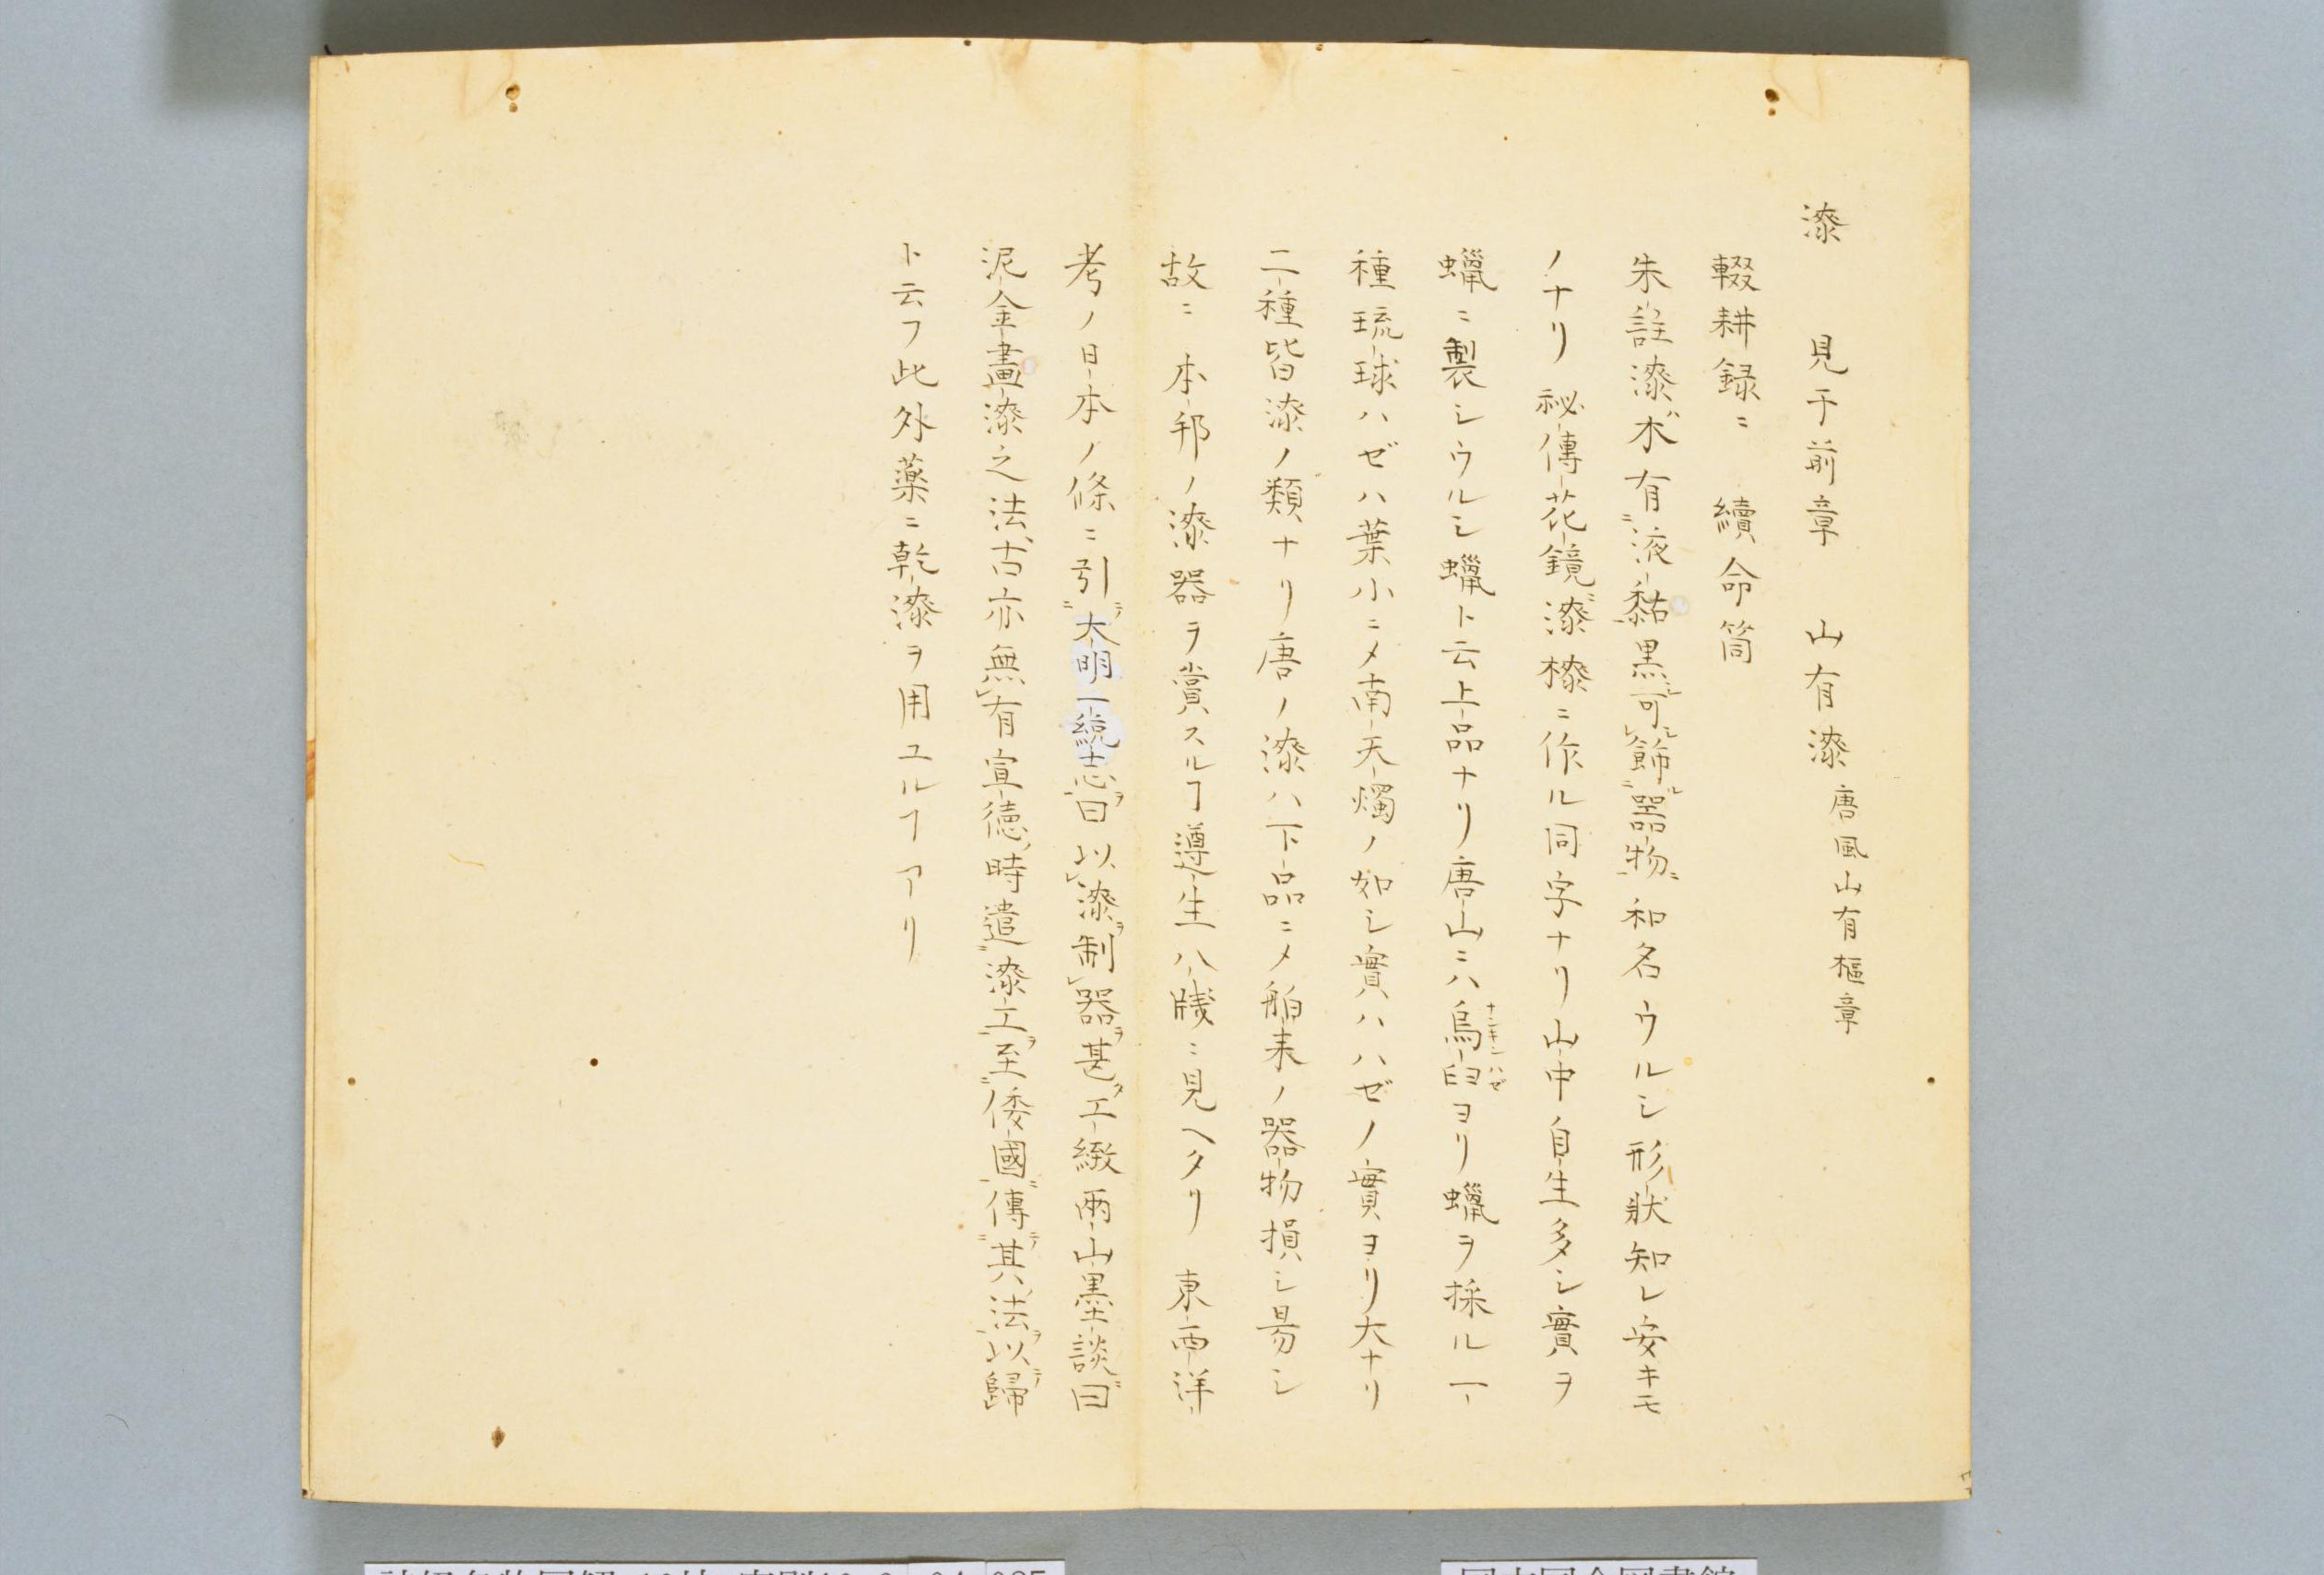 漆　見于前章　山有漆 唐風山有樞章
輟耕録ニ　續命筒
朱註漆ハ木有液黏黒可飾器物 和名ウルシ形狀知レ安キモ
ノナリ 祕傳花鏡ニ漆㯃ニ作ル同字ナリ山中自生多シ實ヲ
蠟ニ製シウルシ蠟ト云上品ナリ唐山ニハ烏臼ヨリ蠟ヲ採ル一
ナンキンハゼ
種琉球ハゼハ葉小ニメ南天燭ノ如シ實ハハゼノ實ヨリ大ナリ
二種皆漆ノ類ナリ唐ノ漆ハ下品ニメ舶来ノ器物損シ易シ
故ニ 本邦ノ漆器ヲ賞スルヿ遵生八牋ニ見ヘタリ 東西洋
考ノ日本ノ條ニ引大明一統志曰以漆制器甚工緻兩山墨談曰
泥金畫漆之法古亦無有宣徳時遣漆工至倭國傳其法以歸
ト云フ此外藥ニ乾漆ヲ用ユルヿアリ
国立国会図書館